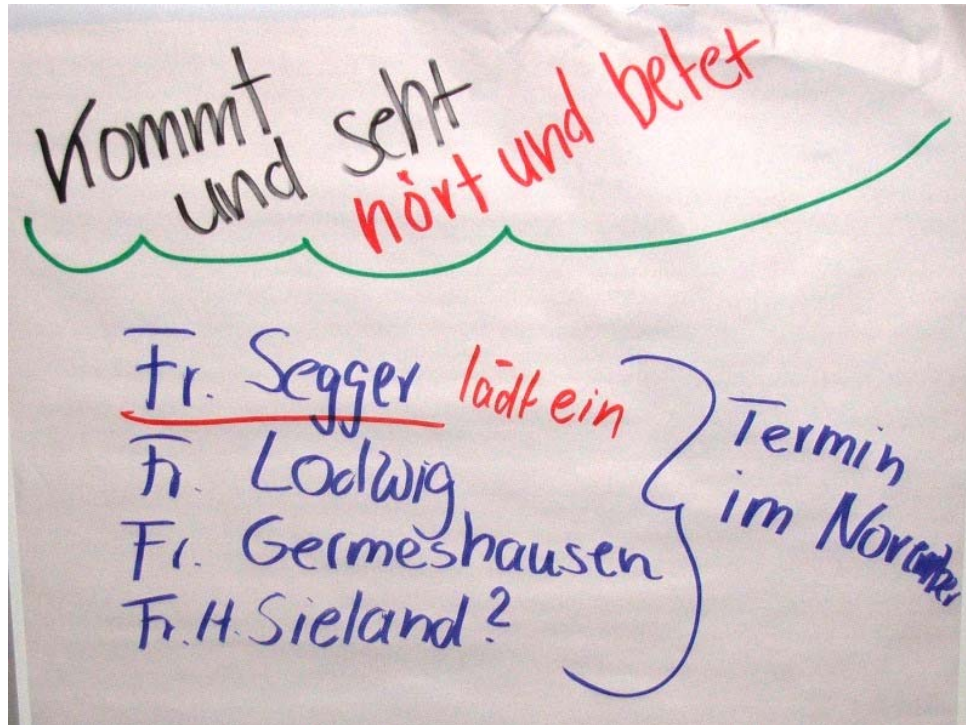 Kommt
und seht
hört und betet
Fr. Segger lädt ein
Fr. Lodwig
Fr. Germeshausen
Fr. H. Sieland?
Termin
im November